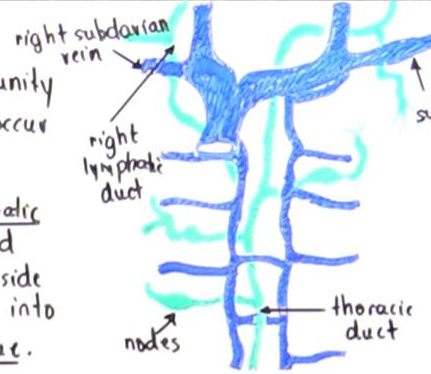 right subdavian
vein
unity
occur
su
right
lymphatic
duct
side
into
nodes
thoracic
duct